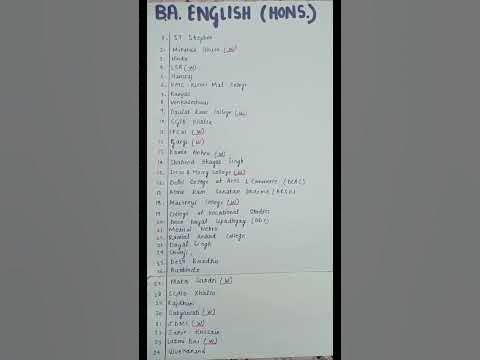 BA. ENGLISH (HONS.)
1. ST Stephen
2. Miranda House (W)
3. Hindu
4. LSR (W)
5. Hansraj
6. KMC Kirori Mal College
7. Ramjas
8. Venkateshwar
9. Daulat Ram College (W)
10. SGTB Khalsa
11. IPCW (W)
12. Gargi (W)
13. Kamla Nehru (W)
14. Shaheed Bhagat Singh
15. Jesus & Mary College (W)
16. Delhi College of Arts & Commerce (DCAC)
17. Atma Ram Sanatan Dharma (ARSD)
18. Maitreyi College (W)
19. College of Vocational Studies
20. Deen Dayal Upadhyay (DDU)
21. Motilal Nehru
22. Ramlal Anand College
23. Dayal Singh
24. Shivaji
25. Desh Bandhu
26. Aurobindo
27. Mata Sundri (W)
28. SGND Khalsa
29. Rajdhani
30. Satyawati (W)
31. JDMC (W)
32. Zakir Hussain
33. Laxmi Bai (W)
34. Vivekanand